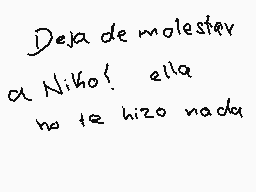 Deja de molestar
a Niko! ella
no te hizo nada